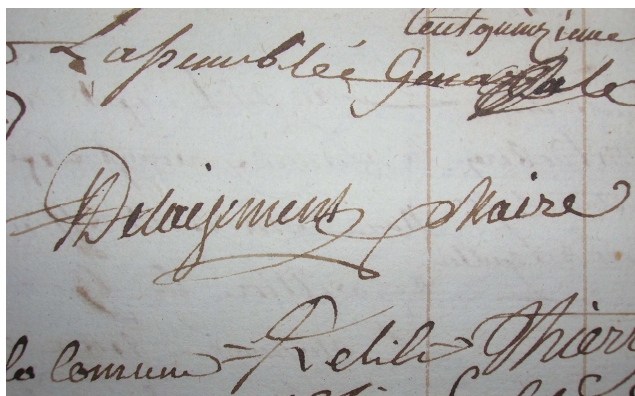 Centquinzieme
Lassemblée Generalle
Delaizement Maire
la Comune = Retih Thierr